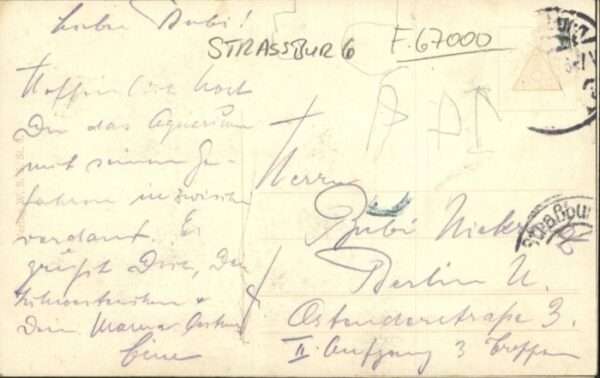 Lieber Bubi!
STRASSBURG F. 67000
Hoffentlich hast
Du das Aquarium
mit seinen Ge-
fahren inzwischen
verdaut. Es
grüßt Dich, Dein
Schwesterchen +
Dein
Herrn
Bubi
Berlin N.
Ostenderstraße 3.
II. Aufgang 3 Treppen